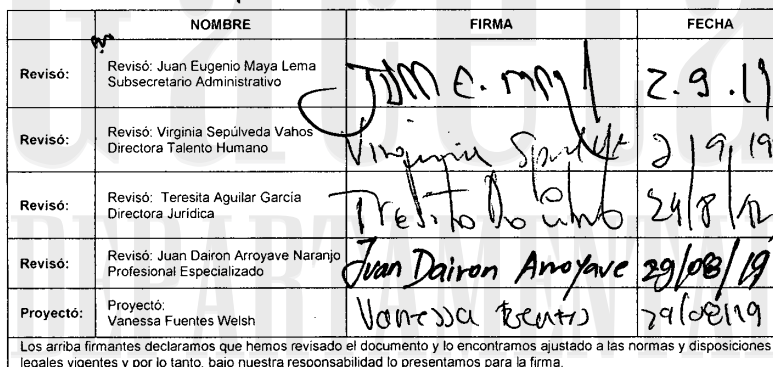 NOMBRE FIRMA FECHA
Revisó: Revisó: Juan Eugenio Maya Lema
Subsecretario Administrativo
2.9.19
Revisó: Revisó: Virginia Sepúlveda Vahos
Directora Talento Humano
Virginia 2/9/19
Revisó: Revisó: Teresita Aguilar García
Directora Jurídica
Revisó: Revisó: Juan Dairon Arroyave Naranjo
Profesional Especializado
Juan Dairon Arroyave 29/08/19
Proyectó: Proyectó:
Vanessa Fuentes Welsh
Vanessa 29/08/19
Los arriba firmantes declaramos que hemos revisado el documento y lo encontramos ajustado a las normas y disposiciones
legales vigentes y por lo tanto, bajo nuestra responsabilidad lo presentamos para la firma.